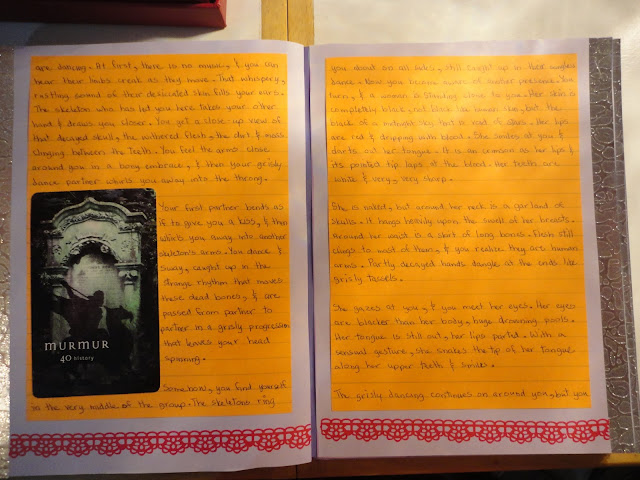 are dancing. At first, there is no music, & you can
hear their limbs creak as they move. That whispery,
rustling sound of their desiccated skin fills your ears.
The skeleton who has led you here takes your other
hand & draws you closer. You get a close-up view of
that decayed skull, the withered flesh, the dirt & moss
clinging between the teeth. You feel the arms close
around you in a bony embrace, & then your grisly
dance partner whirls you away into the throng.
Your first partner bends as
if to give you a kiss, & then
whirls you away into another
skeleton's arms. You dance &
sway, caught up in the
strange rhythm that moves
these dead bones, & are
passed from partner to
partner in a grisly progression
that leaves your head
spinning.
Somehow, you find yourself
in the very middle of the group. The skeletons ring
MURMUR
40 history
you about on all sides, still caught up in their
dance. Now you become aware of another presence. You
turn, & a woman is standing close to you. Her skin is
completely black, not black like human skin, but the
black of a midnight sky that is void of stars. Her lips
are red & dripping with blood. She smiles at you &
darts out her tongue. It is as crimson as her lips &
its pointed tip laps at the blood. Her teeth are
white & very, very sharp.
She is naked, but around her neck is a garland of
skulls. It hangs heavily upon the swell of her breasts.
Around her waist is a skirt of long bones. Flesh still
clings to most of them, & you realize they are human
arms. Partly decayed hands dangle at the ends like
grisly tassels.
She gazes at you, & you meet her eyes. Her eyes
are blacker than her body, huge drowning pools.
Her tongue is still out, her lips parted. With a
sensual gesture, she snakes the tip of her tongue
along her upper teeth &
The grisly dancing continues on around you, but you